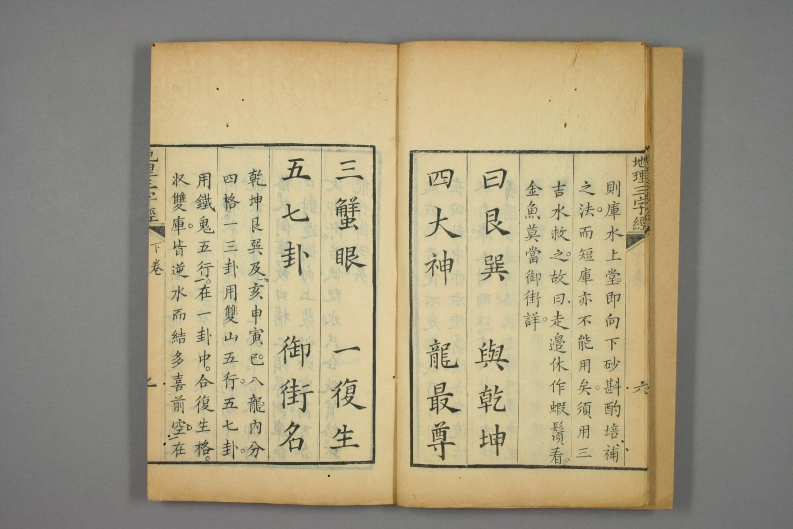 地理三字經
六
則庫水上堂。即向下砂斟酌培補
之法。而短庫亦不能用矣。須用三
吉水救之。故曰。走邊休作蝦鬚看。
金魚莫當御街詳。
曰艮巽　與乾坤
四大神　龍最尊
三蟹眼　一復生
五七卦　御街名
乾坤艮巽及亥申寅巳。八龍內分
四格。一三卦用雙山五行。五七卦。
用鐵鬼五行。在一卦中。合復生格。
収雙庫。皆逆水而結多喜前空。在
地理三字經
下卷
七